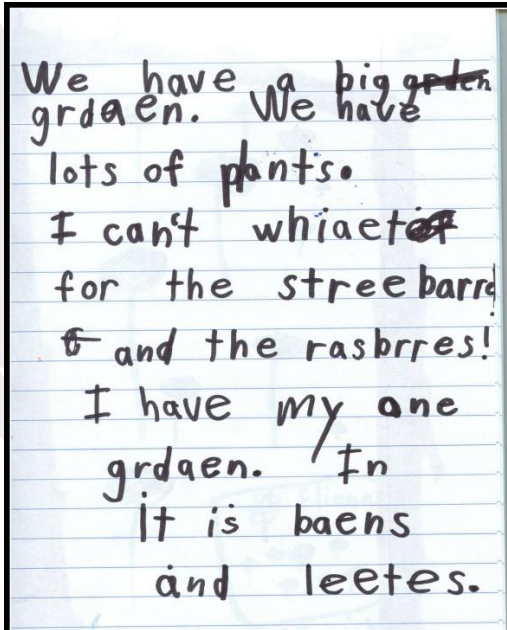 We have a big
grdaen. We have
lots of plants.
I can't whiaet
for the streebarrd
and the rasbrres!
I have my one
grdaen. In
it is baens
and leetes.